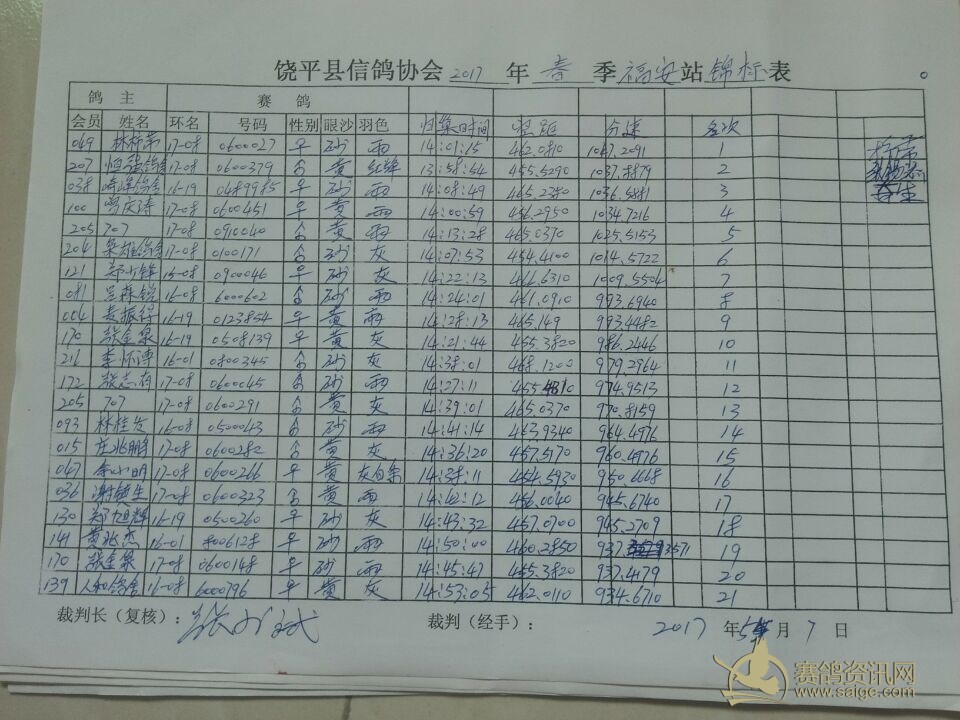 饶平县信鸽协会 2017 年 春 季 福安 站 锦标 表
鸽 主 赛 鸽
会员 姓名 环名 号码 性别 眼沙 羽色 归巢时间 空距 分速 名次
049 17-08 0600027 早 砂 雨 14:01:15 462.0810 1047.2091 1
207 17-08 0600379 黄 13:58:54 455.5290 1037.8879 2
038 16-19 0489985 早 砂 雨 14:08:49 465.2250 1036.5881 3
100 17-08 0600451 早 黄 雨 14:00:59 456.2950 1034.7216 4
205 707 17-08 0910040 黄 雨 14:13:28 465.0370 1025.5153 5
204 17-08 0100171 砂 灰 14:07:53 454.4100 1014.5722 6
121 16-08 0900046 早 砂 灰 14:22:13 464.6310 1009.5504 7
081 16-08 6000602 砂 雨 14:24:01 461.0910 993.6940 8
004 16-19 0123854 早 黄 雨 14:28:13 465.149 993.4482 9
170 张金泉 16-19 0508139 早 黄 灰 14:21:44 455.3820 986.2446 10
216 16-01 0800345 砂 灰 14:38:01 468.1200 979.2964 11
172 17-08 0600045 砂 雨 14:27:11 455.4810 974.9513 12
205 707 17-08 0600291 黄 灰 14:39:01 465.0370 970.8159 13
093 16-08 0500043 砂 雨 14:41:14 463.9340 964.6976 14
015 庄兆鹏 17-08 0600282 黄 灰 14:36:20 457.5170 960.4976 15
047 余小明 17-08 0600266 早 黄 灰白条 14:38:11 454.5930 950.6668 16
036 17-08 0600323 黄 雨 14:42:12 456.0040 945.6740 17
130 郑旭辉 16-19 0500260 早 砂 灰 14:43:32 457.0700 945.2709 18
141 黄兆杰 16-01 8006128 早 砂 雨 14:50:00 460.2850 937.3571 19
170 张金泉 17-08 0600148 早 砂 雨 14:45:47 455.3820 937.4179 20
139 人和鸽舍 16-08 6000796 早 黄 灰 14:53:05 462.0110 934.6710 21
裁判长（复核）： 裁判（经手）： 2017 年 5 月 7 日
赛鸽资讯网
www.saige.com